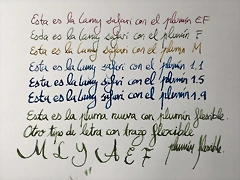 Esta es la Lamy safari con el plumín EF
Esta es la Lamy safari con el plumín F
Esta es la Lamy safari con el pluma M
Esta es la Lamy safari con el plumín 1.1
Esta es la Lamy safari con el plumín 1.5
Esta es la Lamy safari con el plumín 1.9
Esta es la pluma nueva con plumín flexible.
Otro tipo de letra con trazo flexible
M L Y A E F plumín flexible.